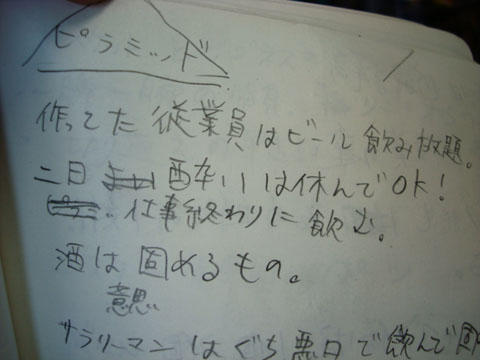 ピラミッド
作ってた従業員はビール飲み放題。
二日酔いは休んでOK!
仕事終わりに飲む。
酒は固めるもの。
意思
サラリーマンはぐち悪口で飲んで固